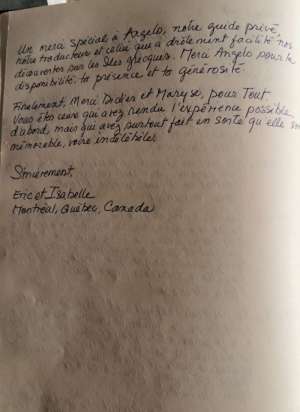 Un merci spécial à Angelo, notre guide privé,
notre traducteur et celui qui a drôlement facilité nos
découvertes sur les Îles grecques. Merci Angelo pour ta
disponibilité, ta présence, et ta générosité.
Finalement, Merci Didier et Maryse, pour Tout
Vous êtes ceux qui avez rendu l'expérience possible
d'abord, mais qui avez surtout fait en sorte qu'elle so
mémorable, voire indélébiles
Sincèrement,
Eric et Isabelle
Montréal, Québec, Canada